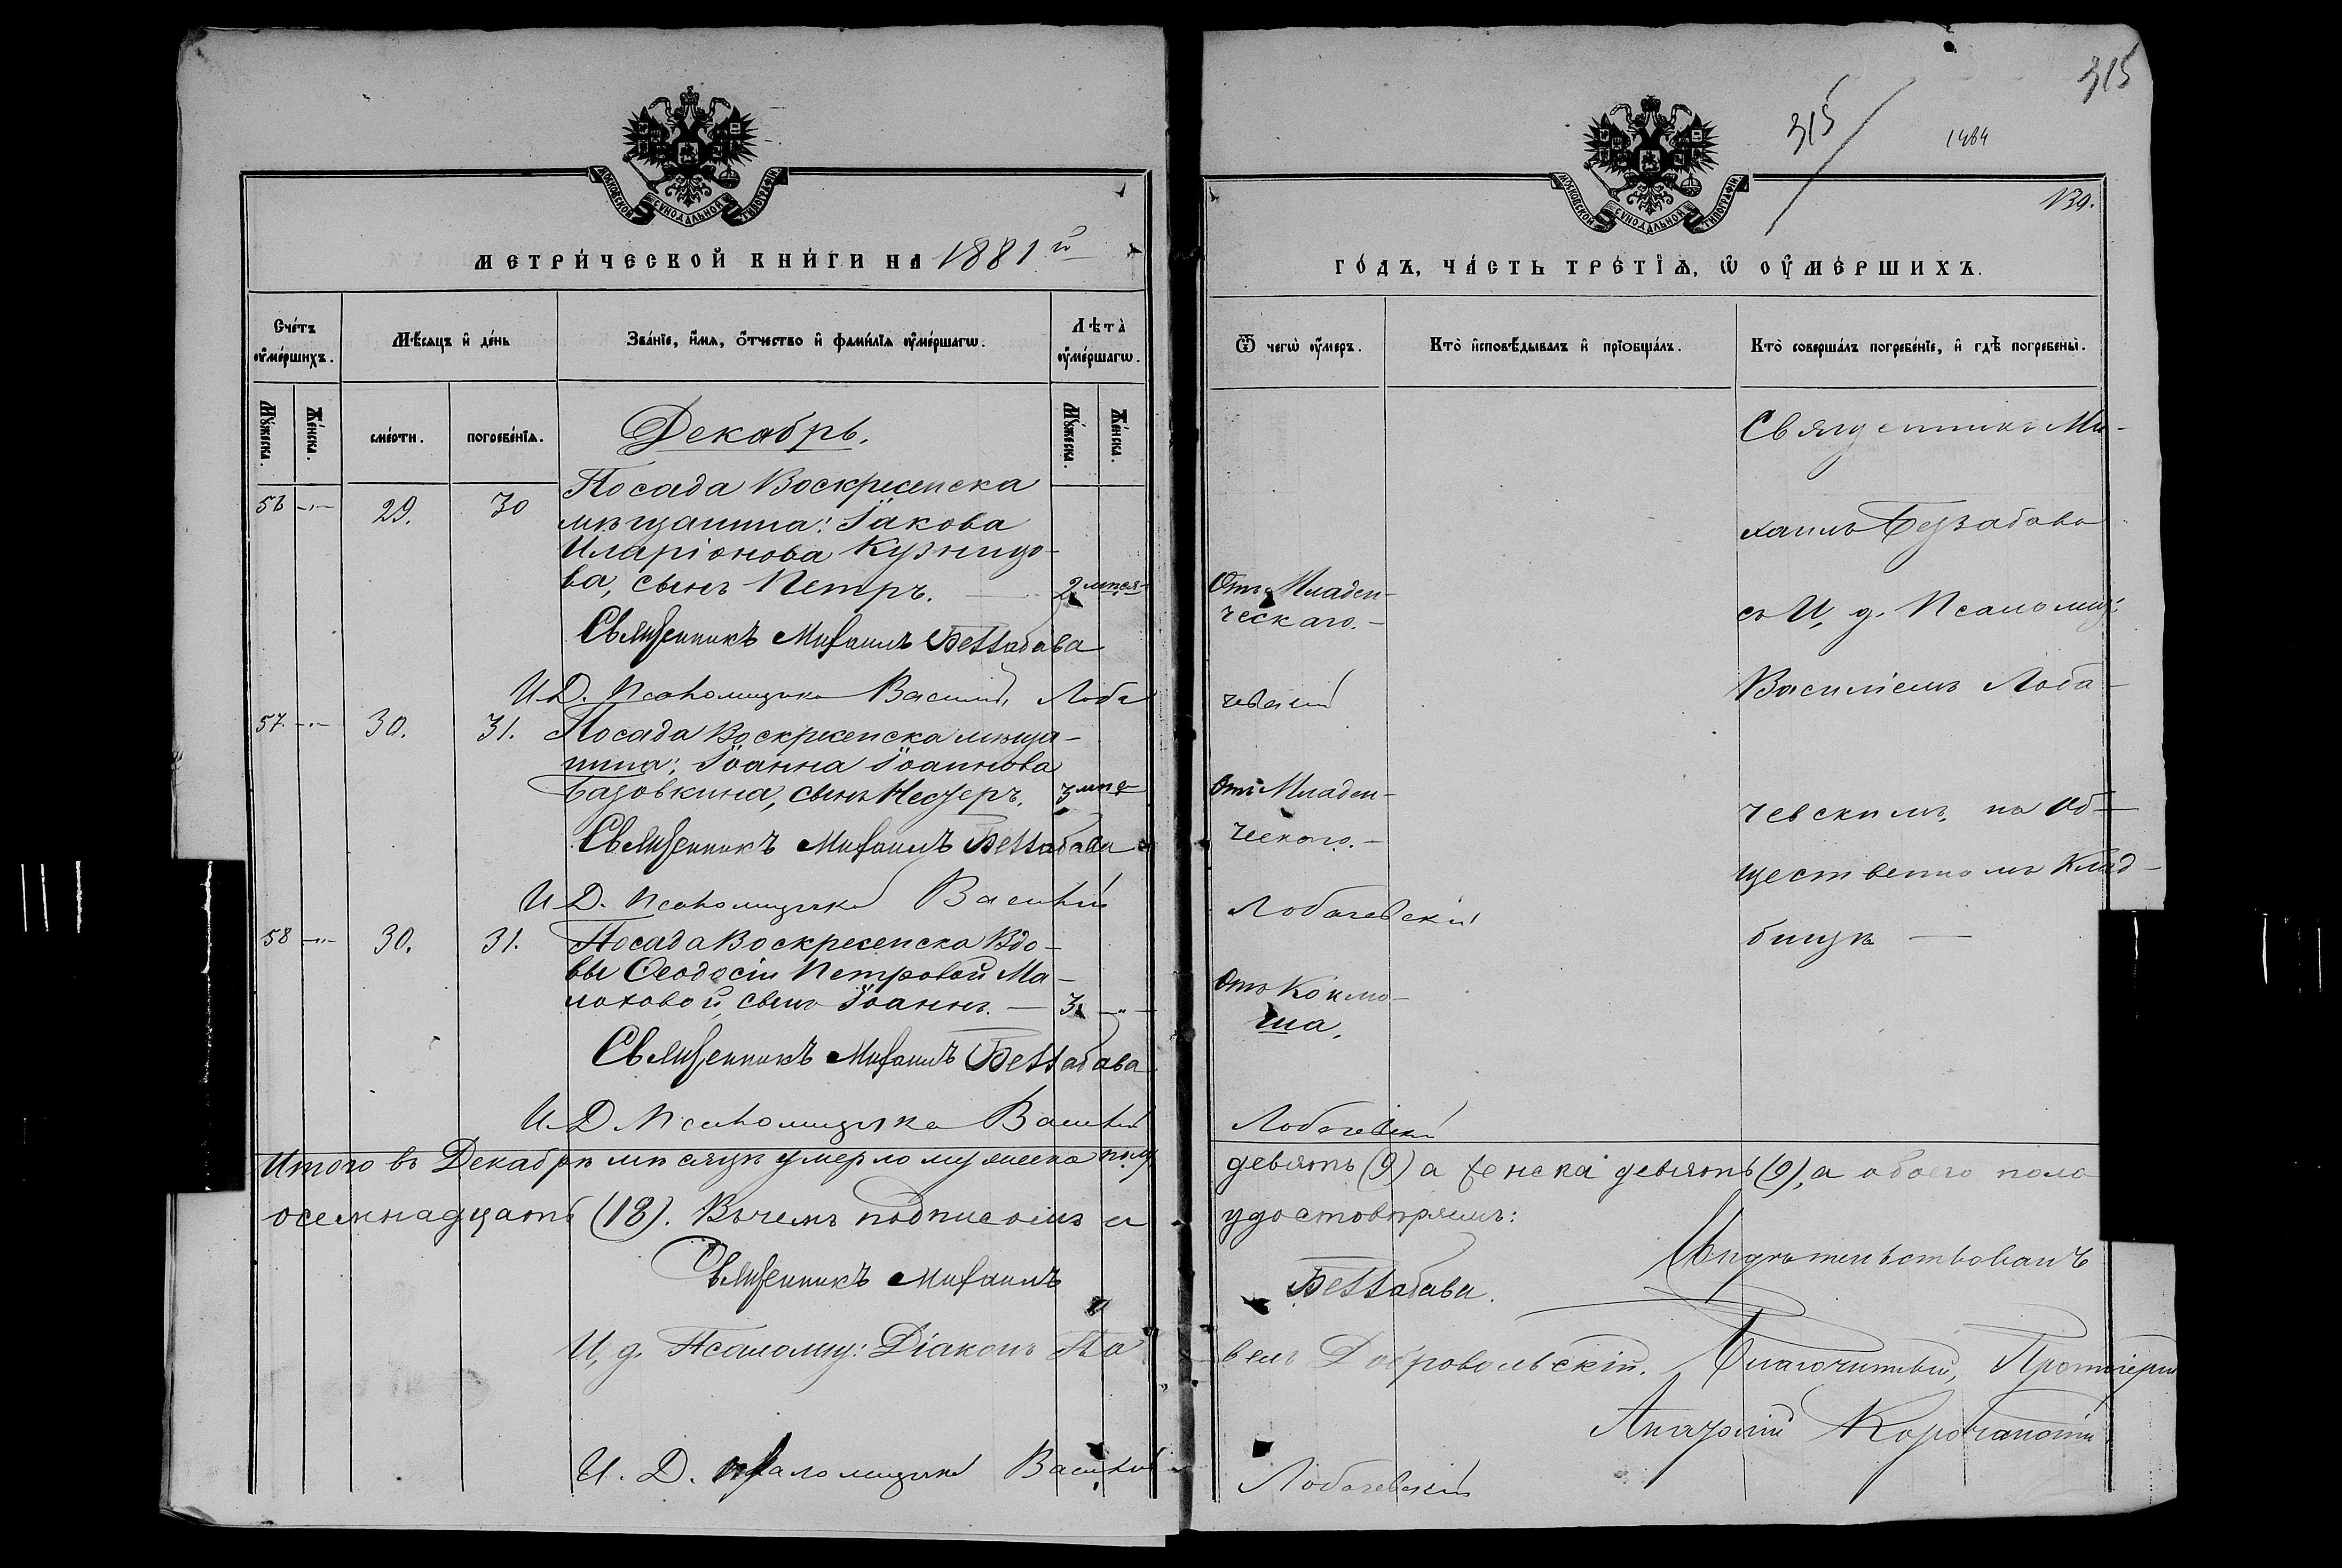 315
315
1484
№39.
МОСКОВСКОЙ СѴНОДАЛЬНОЙ ТИПОГРАФІИ
МЕТРИ́ЧЕСКОЙ КНИ́ГИ НА 1881й
Сче́тъ ᲂу҆ме́ршихъ.
Мѣ́сяцъ и҆ де́нь
Зва́нїе, и҆́мѧ, ѻ҆́тчество и҆ фами́лїѧ ᲂу҆ме́ршагѡ.
Лѣта̀ ᲂу҆ме́ршагѡ.
Мꙋ́жеска.
Же́нска.
сме́рти.
погребе́нїѧ.
Мꙋ́жеска.
Же́нска.
Декабрь.
56 -"- 29. 30 Посада Воскресенска
мѣщанина: Іакова
Иларіонова Кузнецо-
ва, сынъ Петръ. — 2 мѣся-
Священникъ Михаилъ Беззабава
И.Д. Псаломщика Василій Лоба
57. -"- 30. 31. Посада Воскресенска мѣща-
нина: Іоанна Іоаннова
сынъ Несторъ. 3 мѣс-
Священникъ Михаилъ Беззабава
И.Д. Псаломщика Василій
58 -"- 30. 31. Посада Воскресенска Вдо-
вы Ѳеодосіи Петровой Ма-
лоховой, сынъ Іоаннъ. — 3. -"-
Священникъ Михаилъ Беззабава
И.Д. Псаломщика Василій
Итого въ Декабрѣ мѣсяцѣ умерло мужеска полу
осемнадцать (18). Въ чемъ подписомъ и
Священникъ Михаилъ
И, д. Псаломщ: Діаконъ Па
И. Д. Псаломщика Василій
МОСКОВСКОЙ СѴНОДАЛЬНОЙ ТИПОГРАФІИ
ГО́ДЪ, ЧА́СТЬ ТРЕ́ТЇѦ, Ѡ҆ ОУ҆МЕ́РШИХЪ.
Ѿ чегѡ̀ ᲂу҆́меръ.
Кто̀ и҆сповѣ́дывалъ и҆ прїобща́лъ.
Кто̀ соверша́лъ погребе́нїе, и҆ гдѣ̀ погребены̀.
Отъ Младен-
ческаго.-
чевскій
Отъ Младен-
ческаго.-
Лобачевскій
Отъ Коклю-
ша.
Лобачевскій
Священникъ Ми-
хаилъ Беззабава
съ И, д. Псаломщ:
Василіемъ Лоба-
чевскимъ, на Об-
щественномъ Клад-
бищѣ —
девять (9) а женска девять (9), а обоего пола
удостовѣряемъ:
Беззабава.
Свидѣтельствовалъ
велъ Добровольскій. Благочинный, Протоіерей
Анатолій
Лобачевскій